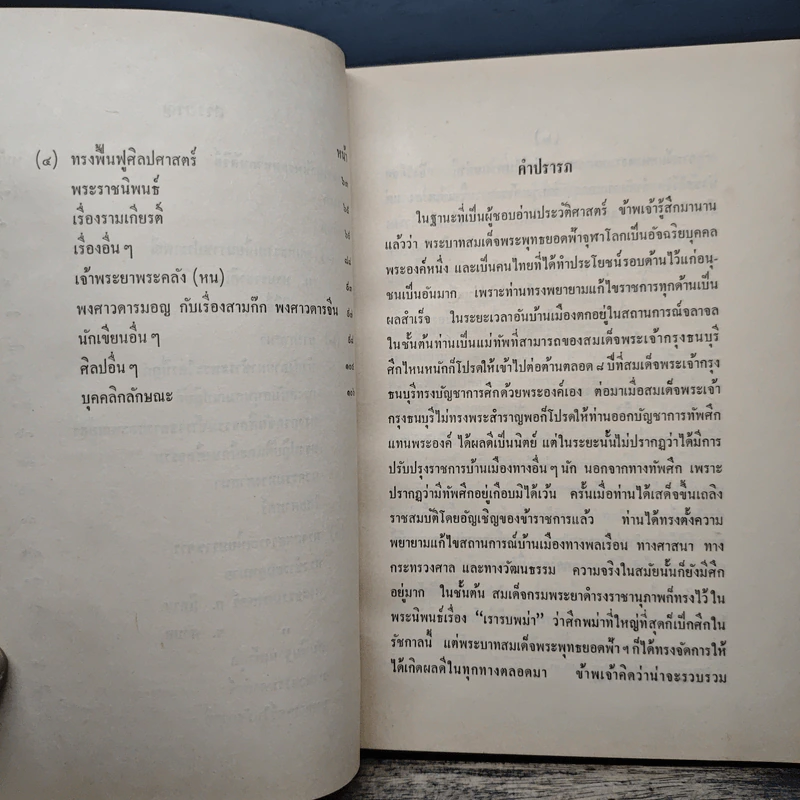 หน้า
(๔) ทรงฟื้นฟูศิลปศาสตร์
พระราชนิพนธ์
เรื่องรามเกียรติ์
เรื่องอื่น ๆ
เจ้าพระยาพระคลัง (หน)
พงศาวดารมอญ กับเรื่องสามก๊ก พงศาวดารจีน
นักเขียนอื่น ๆ
ศิลปอื่น ๆ
บุคคลิกลักษณะ
คำปรารภ
ในฐานะที่เป็นผู้ชอบอ่านประวัติศาสตร์ ข้าพเจ้ารู้สึกมานาน
แล้วว่า พระบาทสมเด็จพระพุทธยอดฟ้าจุฬาโลกเป็นอัจฉริยบุคคล
พระองค์หนึ่ง และเป็นคนไทยที่ได้ทำประโยชน์รอบด้านไว้แก่อนุ-
ชนเป็นอันมาก เพราะท่านทรงพยายามแก้ไขราชการทุกด้านเป็น
ผลสำเร็จ ในระยะเวลาอันบ้านเมืองตกอยู่ในสถานการณ์จลาจล
ในชั้นต้นท่านเป็นแม่ทัพที่สามารถของสมเด็จพระเจ้ากรุงธนบุรี
ศึกไหนหนักก็โปรดให้เข้าไปต่อต้านตลอด ๘ ปีที่สมเด็จพระเจ้ากรุง
ธนบุรีทรงบัญชาการศึกด้วยพระองค์เอง ต่อมาเมื่อสมเด็จพระเจ้า
กรุงธนบุรีไม่ทรงพระสำราญพอก็โปรดให้ท่านออกบัญชาการทัพศึก
แทนพระองค์ ได้ผลดีเป็นนิตย์ แต่ในระยะนั้นไม่ปรากฏว่าได้มีการ
ปรับปรุงราชการบ้านเมืองทางอื่น ๆ นัก นอกจากทางทัพศึก เพราะ
ปรากฏว่ามีทัพศึกอยู่เกือบมิได้เว้น ครั้นเมื่อท่านได้เสด็จขึ้นเถลิง
ราชสมบัติโดยอัญเชิญของข้าราชการแล้ว ท่านได้ทรงตั้งความ
พยายามแก้ไขสถานการณ์บ้านเมืองทางพลเรือน ทางศาสนา ทาง
กระทรวงศาล และทางวัฒนธรรม ความจริงในสมัยนั้นก็ยังมีศึก
อยู่มาก ในชั้นต้น สมเด็จกรมพระยาดำรงราชานุภาพก็ทรงไว้ใน
พระนิพนธ์เรื่อง “เรารบพม่า” ว่าศึกพม่าที่ใหญ่ที่สุดก็เป็กศึกใน
รัชกาลนี้ แต่พระบาทสมเด็จพระพุทธยอดฟ้า ฯ ก็ได้ทรงจัดการให้
ได้เกิดผลดีในทุกทางตลอดมา ข้าพเจ้าคิดว่าน่าจะรวบรวม